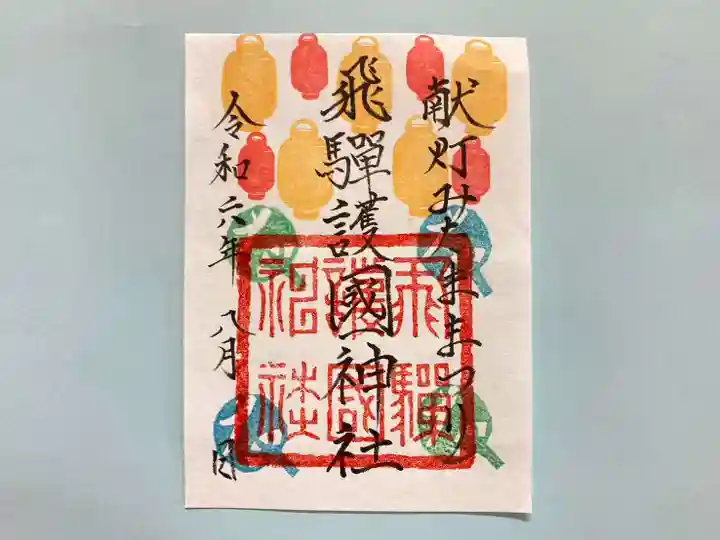 献灯みたままつり
飛驒護國神社
令和六年 八月 日
飛驒
護國
神社